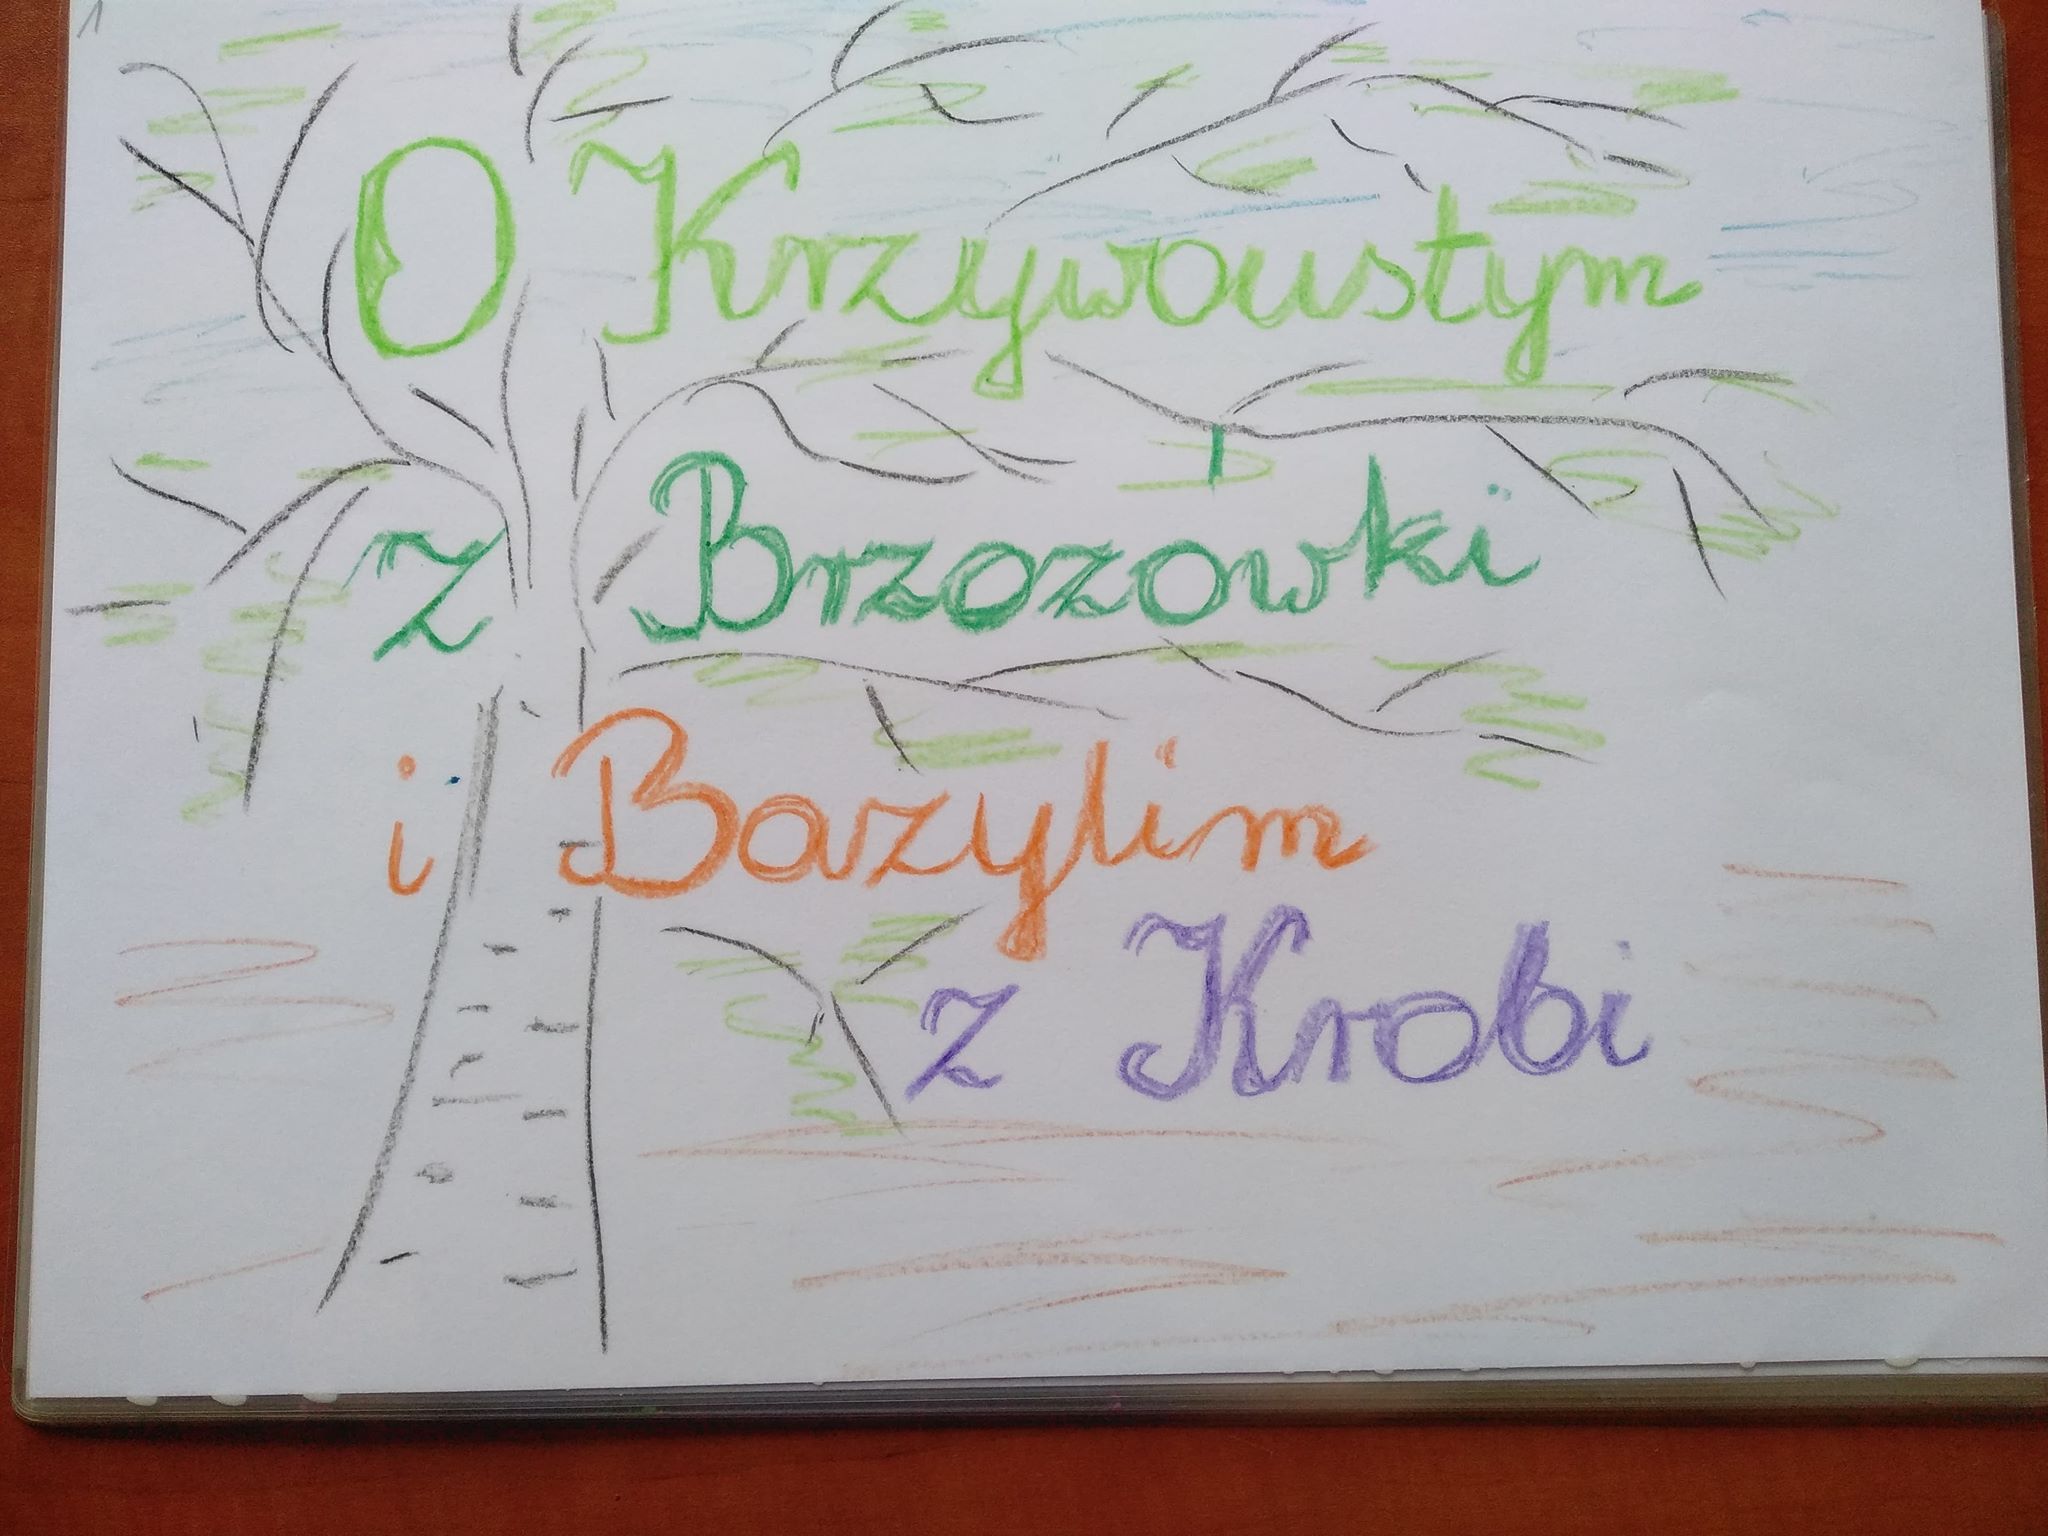 1
O Krzywoustym
z Brzozówki
i Bazylim
z Krobi